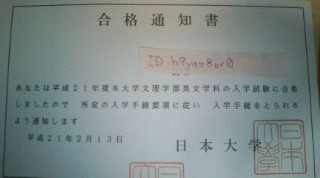 合格通知書
ID h9yqm8or0
あなたは平成21年度本大学文理学部英文学科の入学試験に合格
しましたので 所定の入学手続要項に従い 入学手続をとられる
よう通知します
平成21年2月13日
日本大学